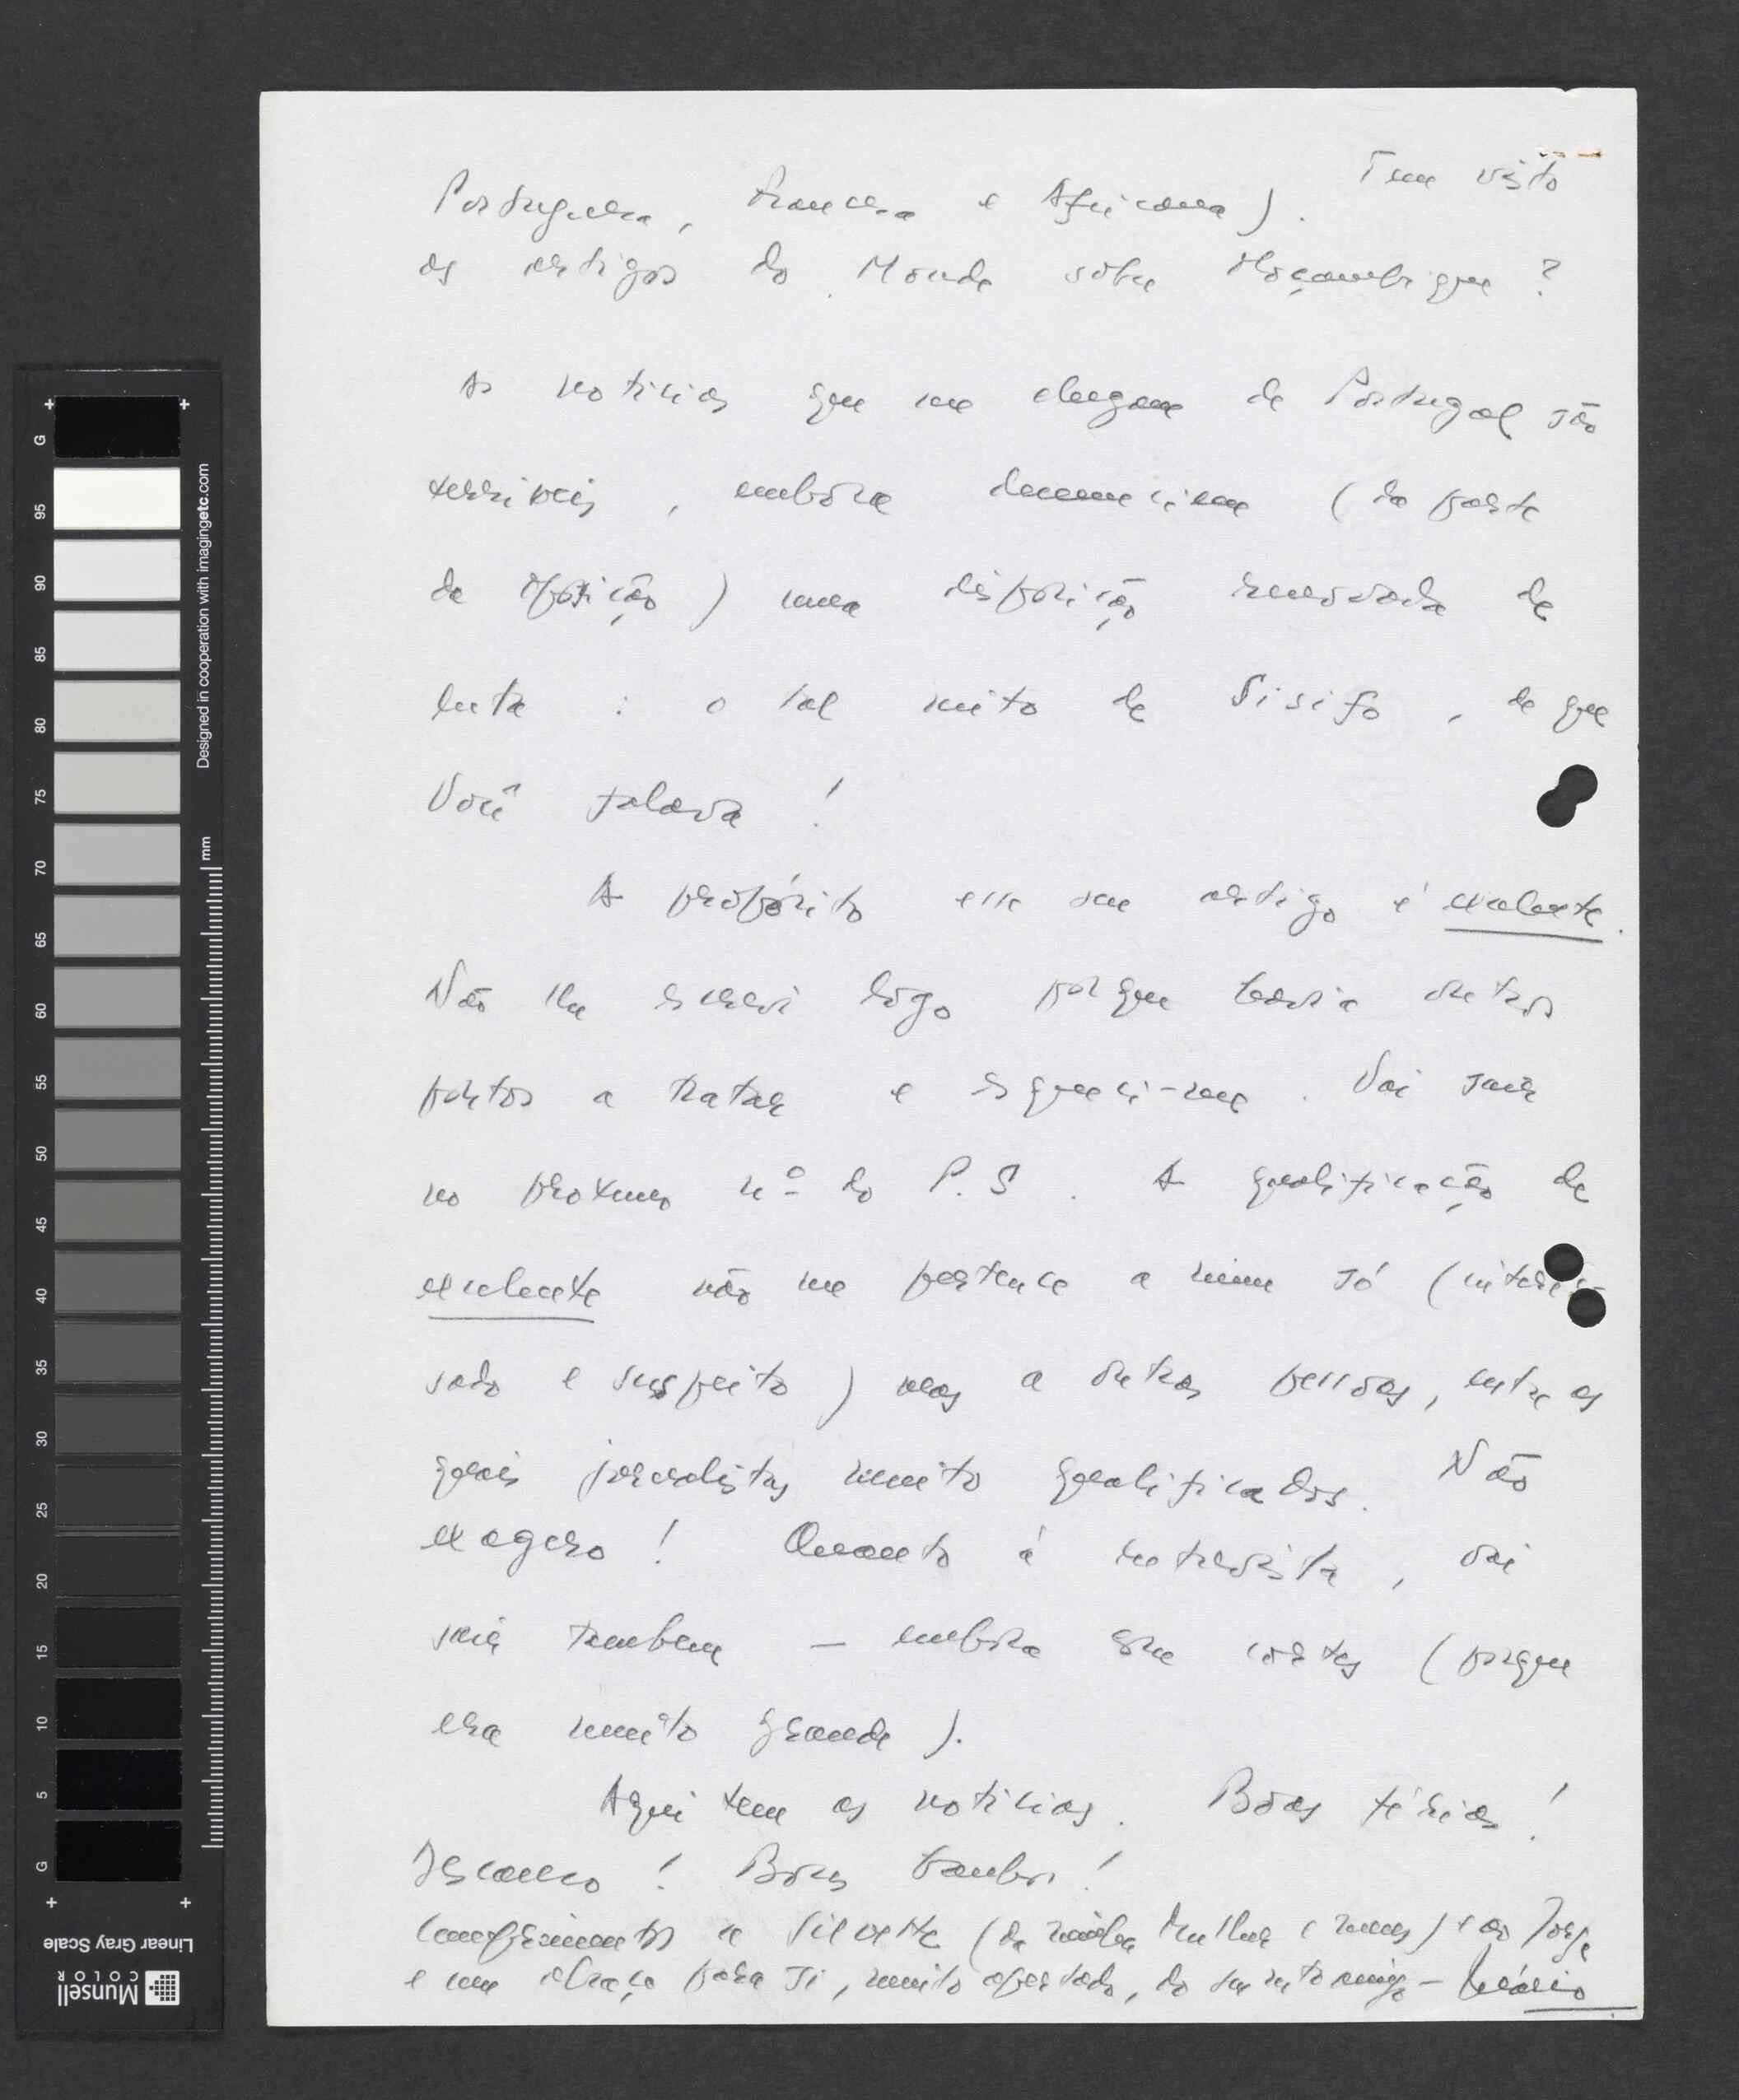 Tem visto
Portuguesa, Francesa e Africana).
os artigos do Monde sobre Moçambique ?
As noticias que me chegam de Portugal são
terriveis , embora denunciem ( da parte
da oposição ) uma disposição renovada de
luta : o tal mito de Sisifo , de que
Você falava !
A propósito esse seu artigo é excelente.
Não lhe escrevi logo porque havia outros
pontos a tratar e esqueci-me . Vai sair
no proximo nº do P.S . A qualificação de
excelente não me pertence a mim só (interes-
sado e suspeito ) mas a outras pessoas, entre as
quais jornalistas muito qualificados. Não
exagero ! Quanto á entrevista , vai
sair tambem — embora com cortes ( porque
era muito grande ).
Aqui tem as noticias. Boas férias !
Descanso ! Bons banhos !
Cumprimentos a (da minha Mulher e meus) e ao Jorge
e um abraço para si, muito apertado, do seu mto amigo — Mário
G
95
90
85
80
75
70
65
60
55
50
45
40
35
30
25
20
15
10
5
G
Designed in cooperation with imagingetc.com
mm
Linear Gray Scale
Munsell
COLOR